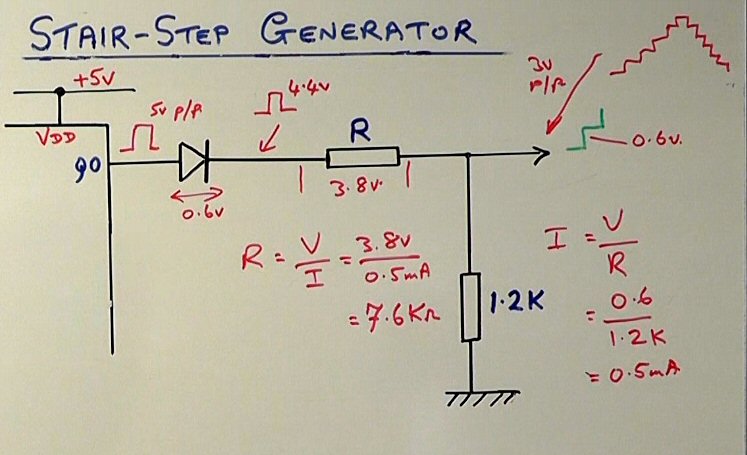 STAIR-STEP GENERATOR
+5V
VDD
5V P/P
4.4V
3V
P/P
R
φ0
0.6V
3.8V
0.6V.
R = V/I = 3.8V/0.5mA
= 7.6KΩ
1.2K
I = V/R
= 0.6/1.2K
= 0.5mA